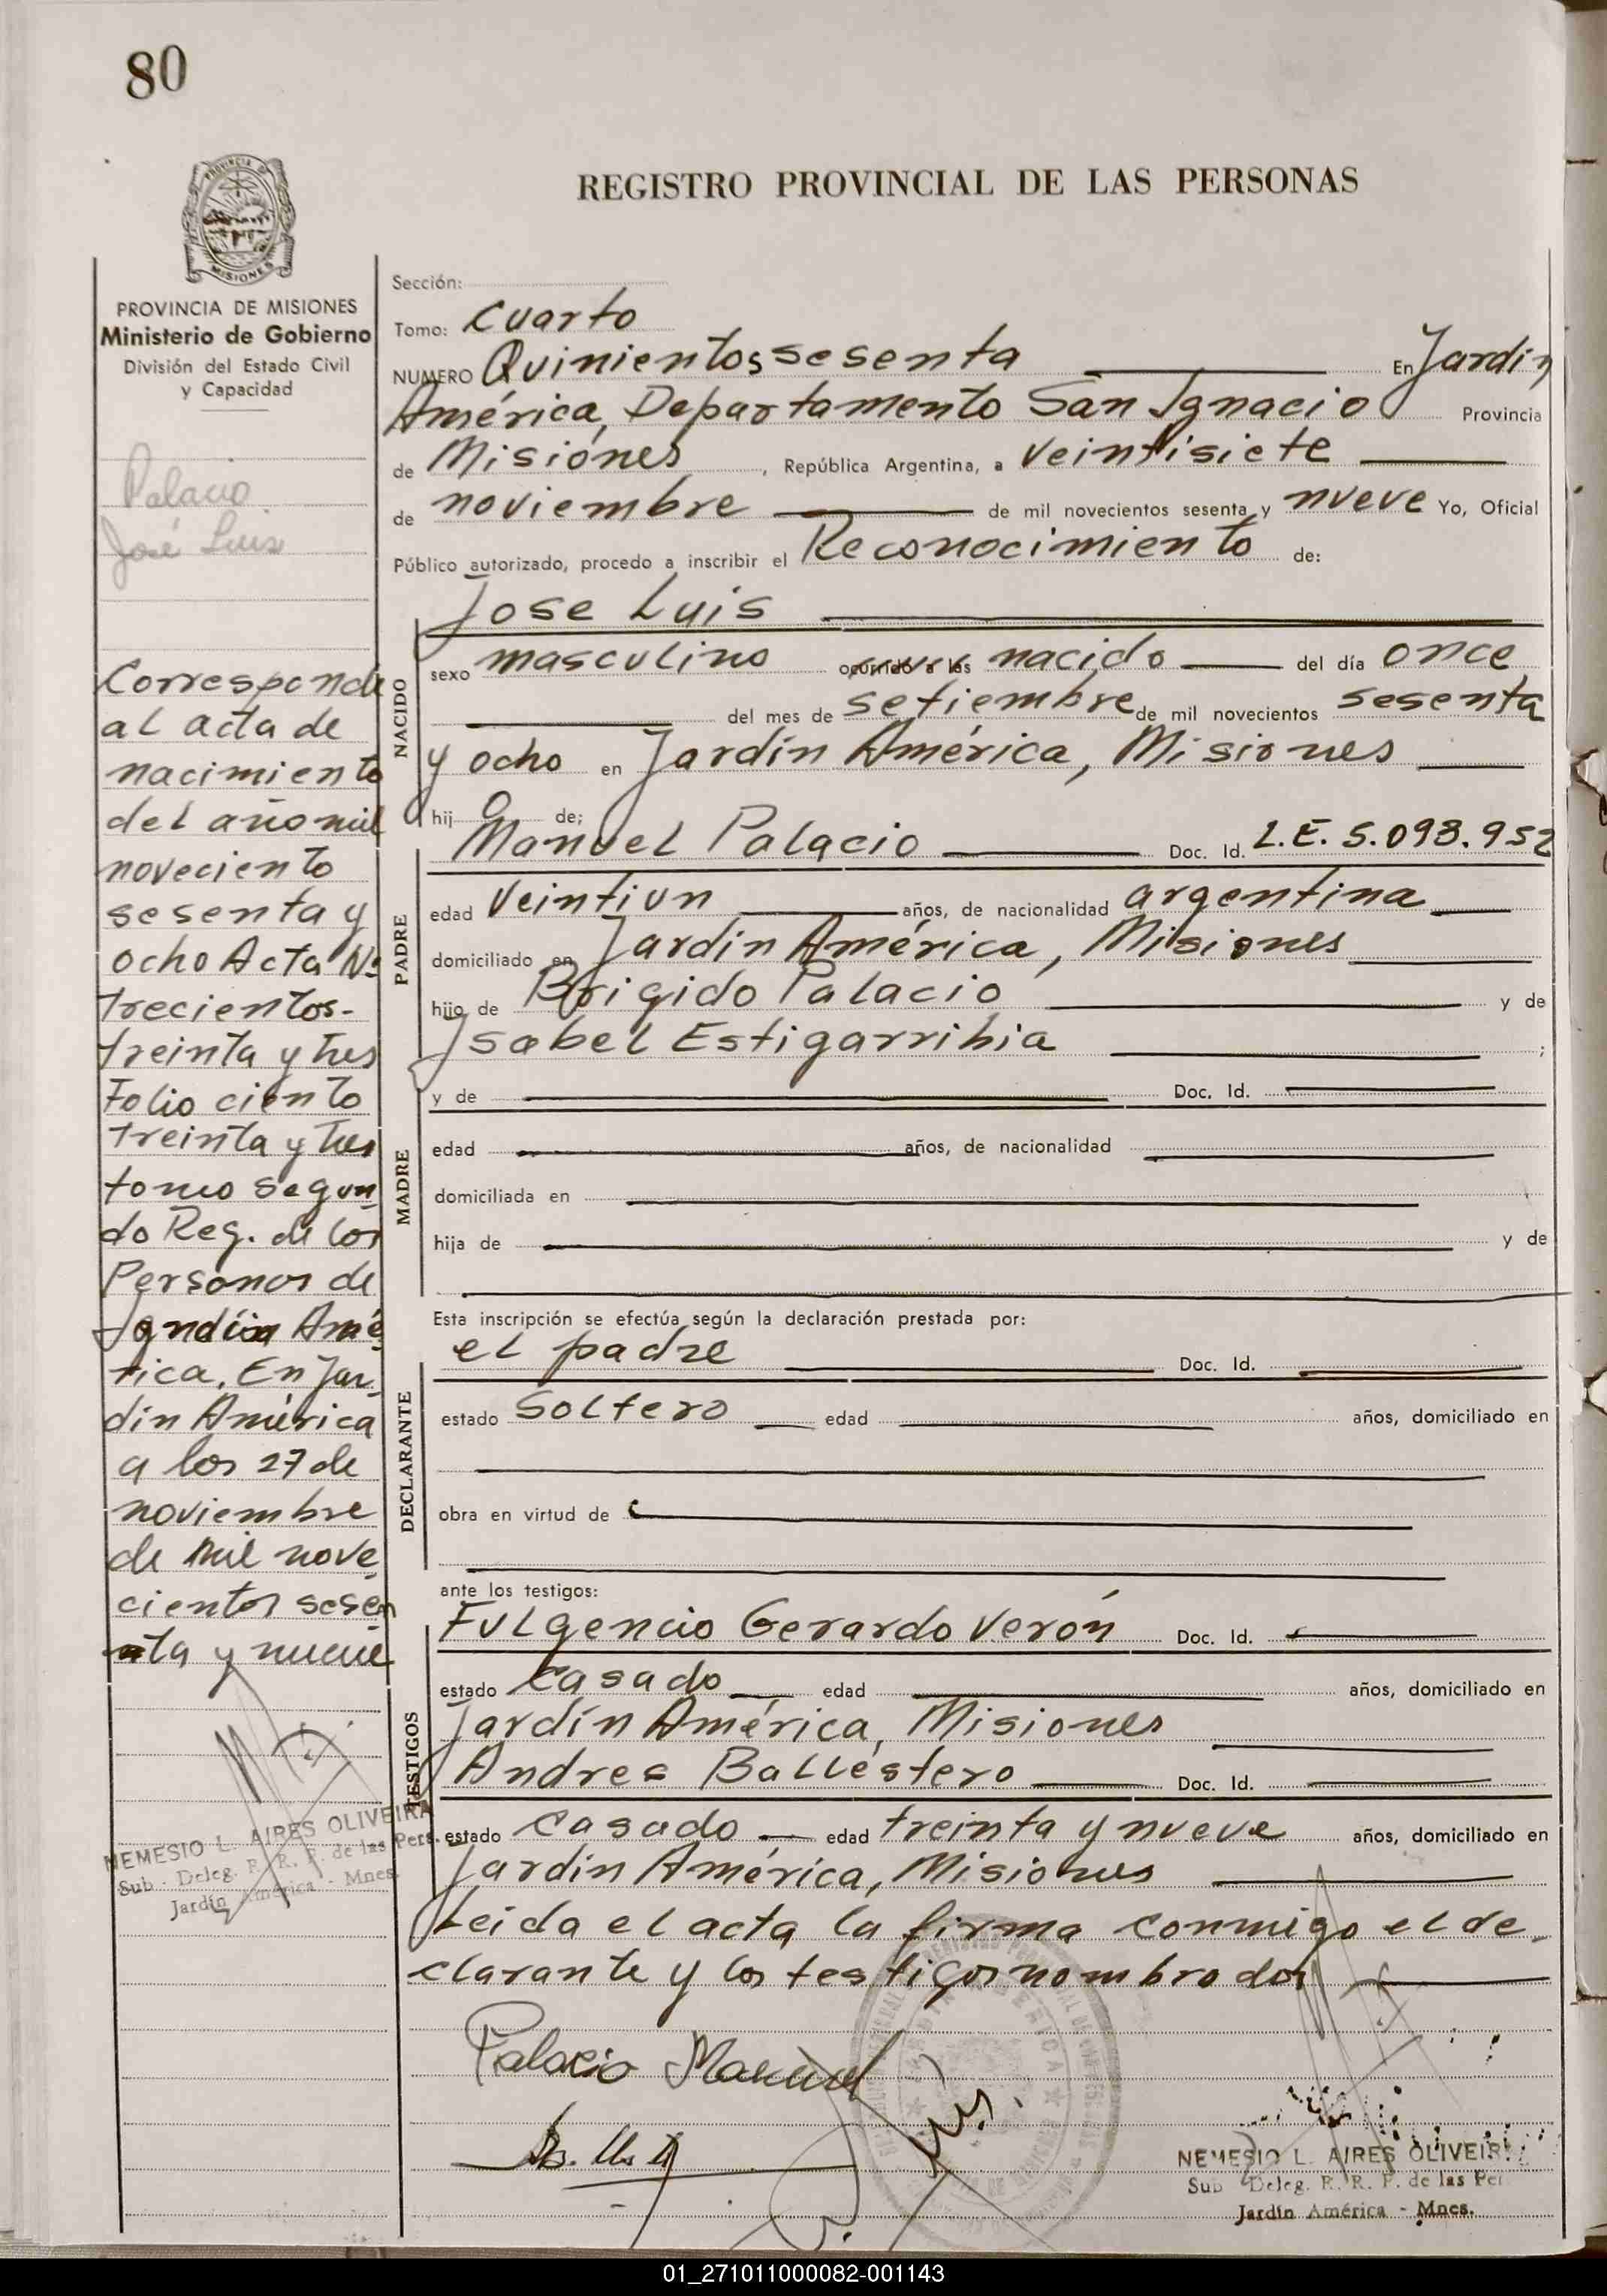 80
REGISTRO PROVINCIAL DE LAS PERSONAS
PROVINCIA DE
MISIONES
PROVINCIA DE MISIONES
Ministerio de Gobierno
División del Estado Civil
y Capacidad
Palacio
José Luis
Corresponde
al acta de
nacimiento
del año mil
noveciento
sesenta y
ocho Acta Nº
trecientos-
treinta y tres
Folio ciento
treinta y tres
tomo segun
do Reg. de los
Personas de
Jardín Amé
rica. En Jar
dín América
a los 27 de
noviembre
de mil nove
cientos sesen
nta y nueve
NEMESIO L. AIRES OLIVEIRA
Sub - Deleg. R. R. P. de las Pers.
Jardín América - Mnes.
Sección:
Tomo: Cuarto
NUMERO Quinientos sesenta En Jardín
América, Departamento San Ignacio Provincia
de Misiones, República Argentina, a veintisiete
de noviembre de mil novecientos sesenta y nueve Yo, Oficial
Público autorizado, procedo a inscribir el Reconocimiento de:
NACIDO
Jose Luis
sexo masculino ocurrido a las nacido del día once
del mes de setiembre de mil novecientos sesenta
y ocho en Jardín América, Misiones
hijo de;
PADRE
Manuel Palacio Doc. Id. L.E. 5.093.952
edad Veintiun años, de nacionalidad argentina
domiciliado en Jardin América, Misiones
hijo de Brigido Palacio y de
Isabel Estigarribia ;
MADRE
y de Doc. Id.
edad años, de nacionalidad
domiciliada en
hija de y de
Esta inscripción se efectúa según la declaración prestada por:
DECLARANTE
el padre Doc. Id.
estado Soltero edad años, domiciliado en
obra en virtud de
ante los testigos:
TESTIGOS
Fulgencio Gerardo Verón Doc. Id.
estado Casado edad años, domiciliado en
Jardín América, Misiones
Andres Ballestero Doc. Id.
estado Casado edad treinta y nueve años, domiciliado en
Jardin América, Misiones
Leida el acta la firma conmigo el de
clarante y los testigos nombrados
Palacio Manuel
NEMESIO L. AIRES OLIVEIR
Sub Deleg. R. R. P. de las Per
Jardín América - Mnes.
01_271011000082-001143